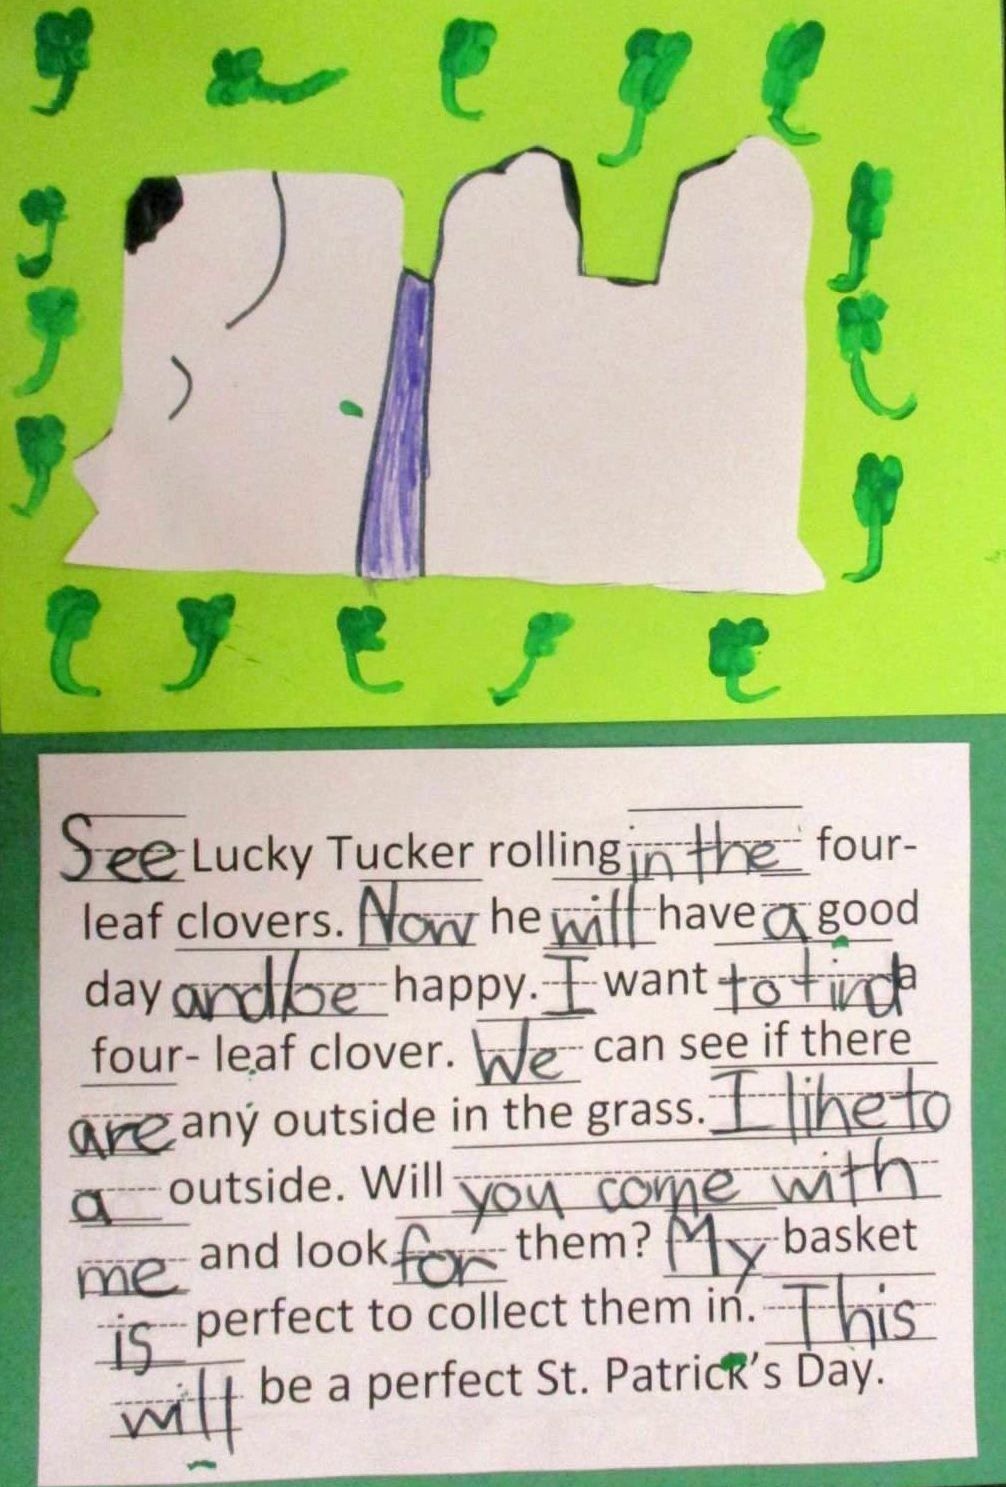 See Lucky Tucker rolling in the four-
leaf clovers. Now he will have a good
day and be happy. I want to find a
four- leaf clover. We can see if there
are any outside in the grass. I like to
a outside. Will you come with
me and look for them? My basket
is perfect to collect them in. This
will be a perfect St. Patrick's Day.